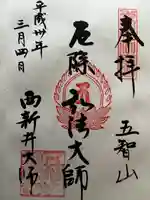 奉拝
五智山
厄除弘法大師
西新井大師
平成卅年
三月四日